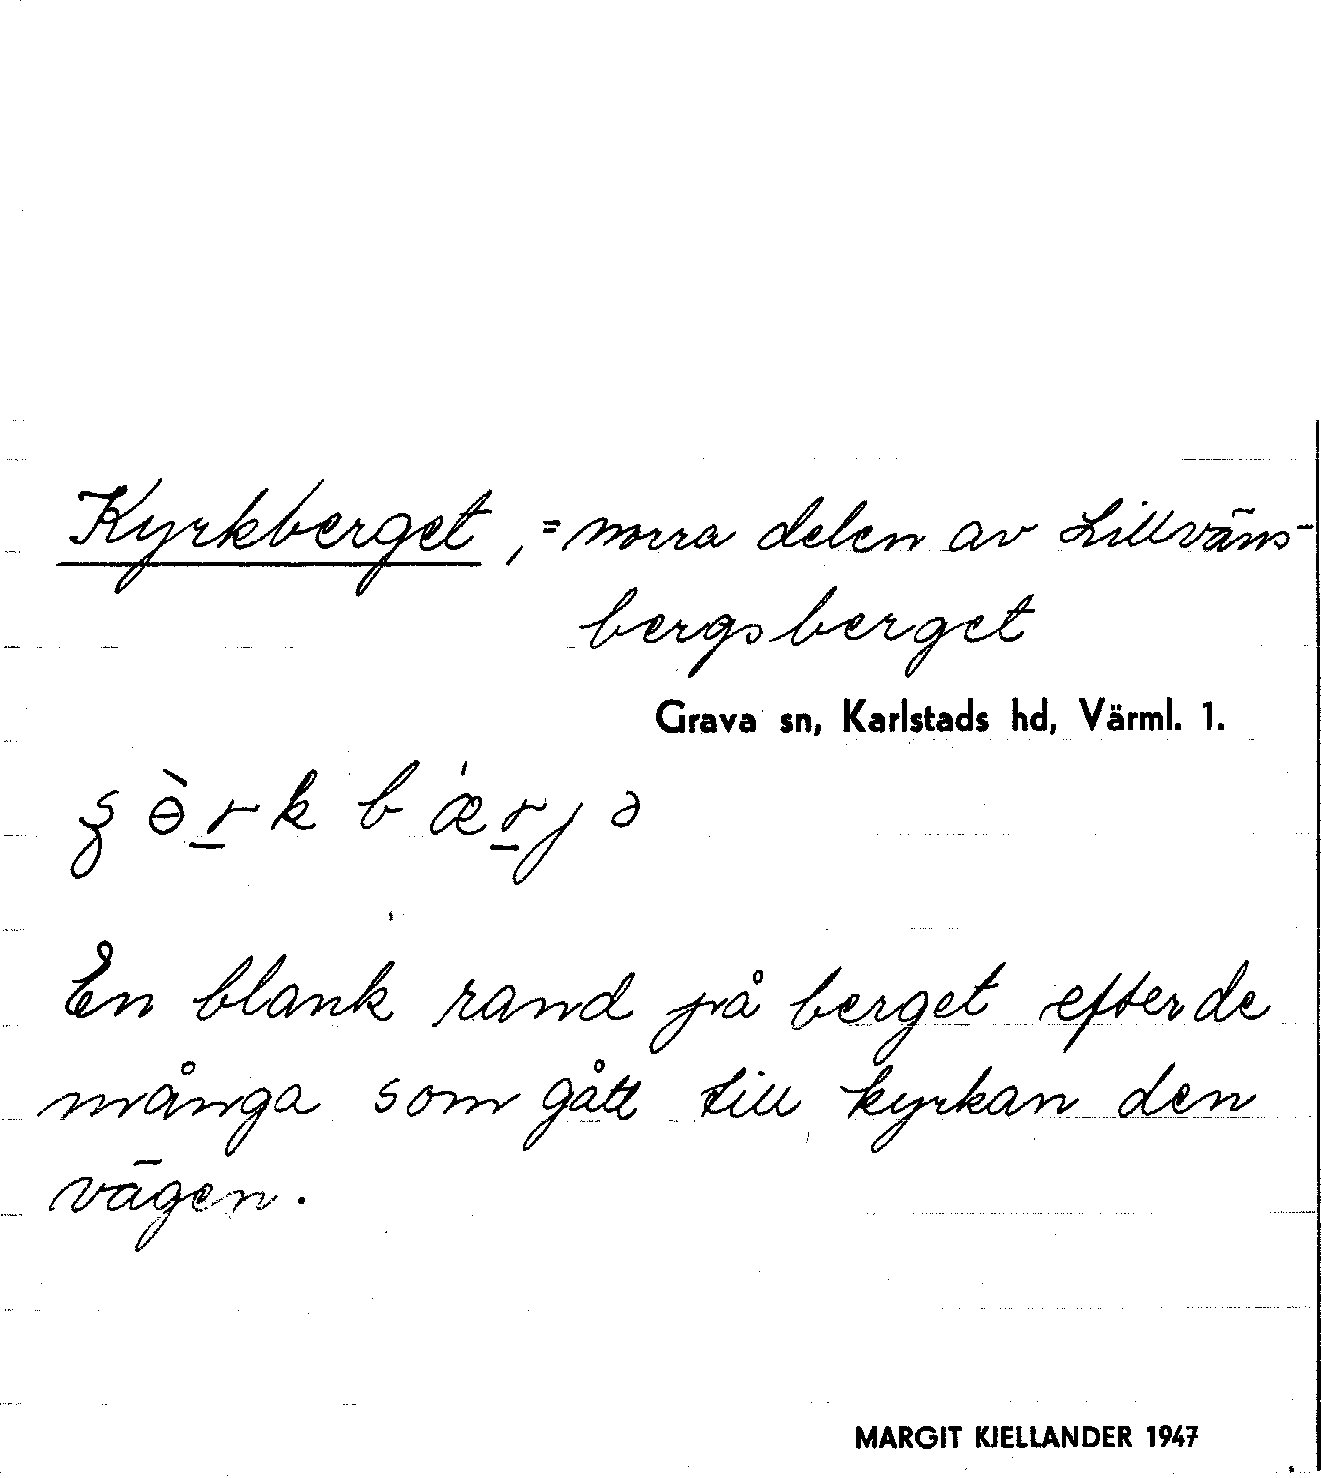 Kyrkberget, = norra delen av Lillväns-
bergsberget
Grava sn, Karlstads hd, Värml. 1.
ʂ ɵ̀ r̲ k b ǽ r̲ j ə
En blank rand på berget efter de
många som gått till kyrkan den
vägen.
MARGIT KJELLANDER 1947